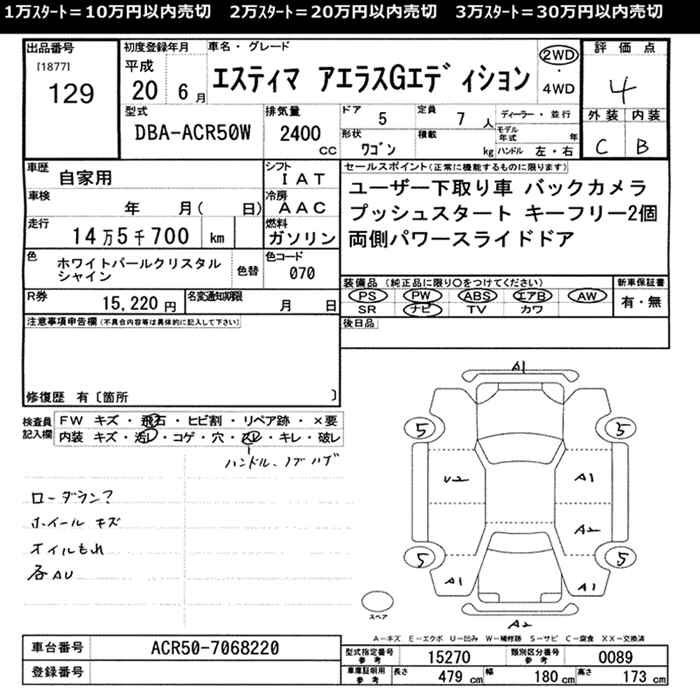 1万ｽﾀｰﾄ＝10万円以内売切　2万ｽﾀｰﾄ＝20万円以内売切　3万ｽﾀｰﾄ＝30万円以内売切
出品番号 初度登録年月 車名・グレード 評価点
[1877] 129 平成 20 6月 エスティマ アエラスGエディション 2WD・4WD 4
型式 排気量 ドア 定員 ディーラー・並行 外装 内装
DBA-ACR50W 2400 CC 5 7人 モデル年式 年 C B
形状 ワゴン 積載 kg ハンドル 左・右
車歴 自家用 シフト IAT セールスポイント(正常に機能するものに限ります)
車検 年 月( 日) 冷房 AAC ユーザー下取り車 バックカメラ
走行 14万5千700 km 燃料 ガソリン プッシュスタート キーフリー2個
両側パワースライドドア
色 ホワイトパールクリスタルシャイン 色替 色コード 070
装備品(純正品に限り○をつけてください) 新車保証書
PS PW ABS エアB AW 有・無
SR ナビ TV カワ
R券 15,220円 名変通知期限 月 日
後日品
注意事項申告欄(不具合内容等は具体的に記入して下さい)
修復歴 有〔箇所 〕
検査員記入欄 FW キズ・飛石・ヒビ割・リペア跡・×要
内装 キズ・汚レ・コゲ・穴・スレ・キレ・破レ
ハンドル、ノブハゲ
ローダウン?
ホイール キズ
オイルもれ
各AU
A1
5 5
U2 A1
A2
5 5
A1 A1
A2
スペア
A－キズ E－エクボ U－凹み W－補修跡 S－サビ C－腐食 XX－交換済
車台番号 ACR50-7068220
登録番号
型式指定番号参考 15270 類別区分番号参考 0089
車庫証明用参考 長さ 479 cm 幅 180 cm 高さ 173 cm